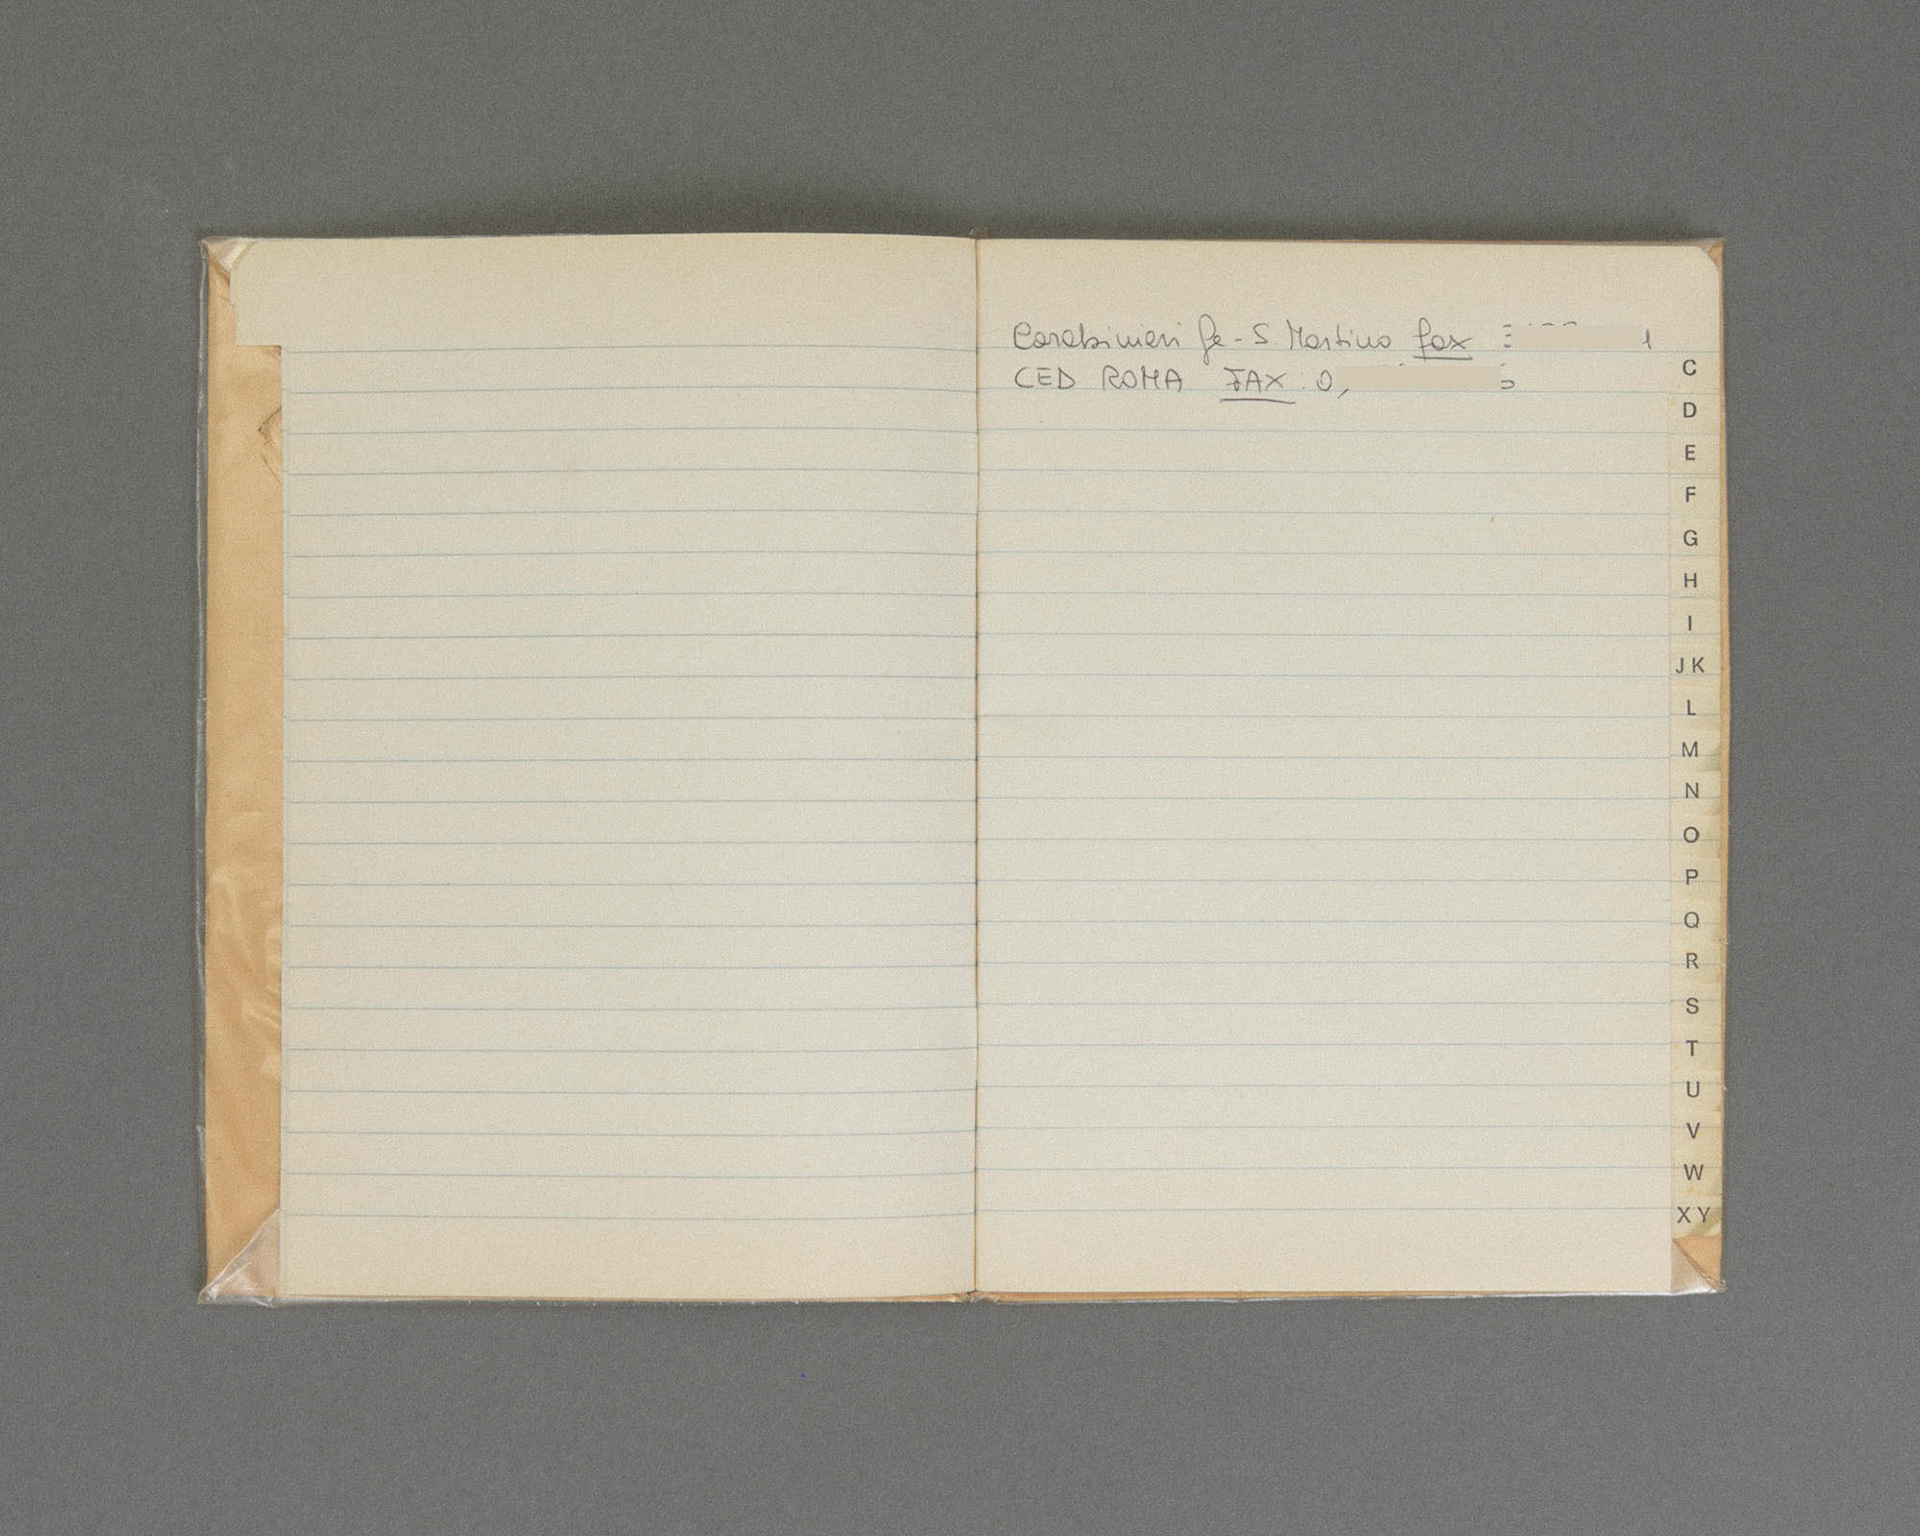 Carabinieri Ge - S Martino fax
CED ROMA FAX: 0,
C
D
E
F
G
H
I
JK
L
M
N
O
P
Q
R
S
T
U
V
W
XY